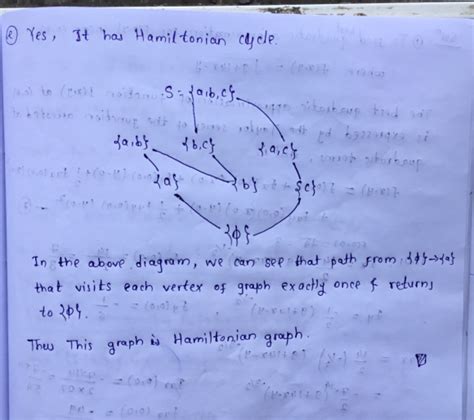 ② Yes, It has Hamiltonian cycle.
S = {a,b,c}
{a,b} {b,c} {a,c}
{a} {b} {c}
{ϕ}
In the above diagram, we can see that path from {ϕ}→{a}
that visits each vertex of graph exactly once & returns
to {ϕ}.
Thus This graph is Hamiltonian graph.